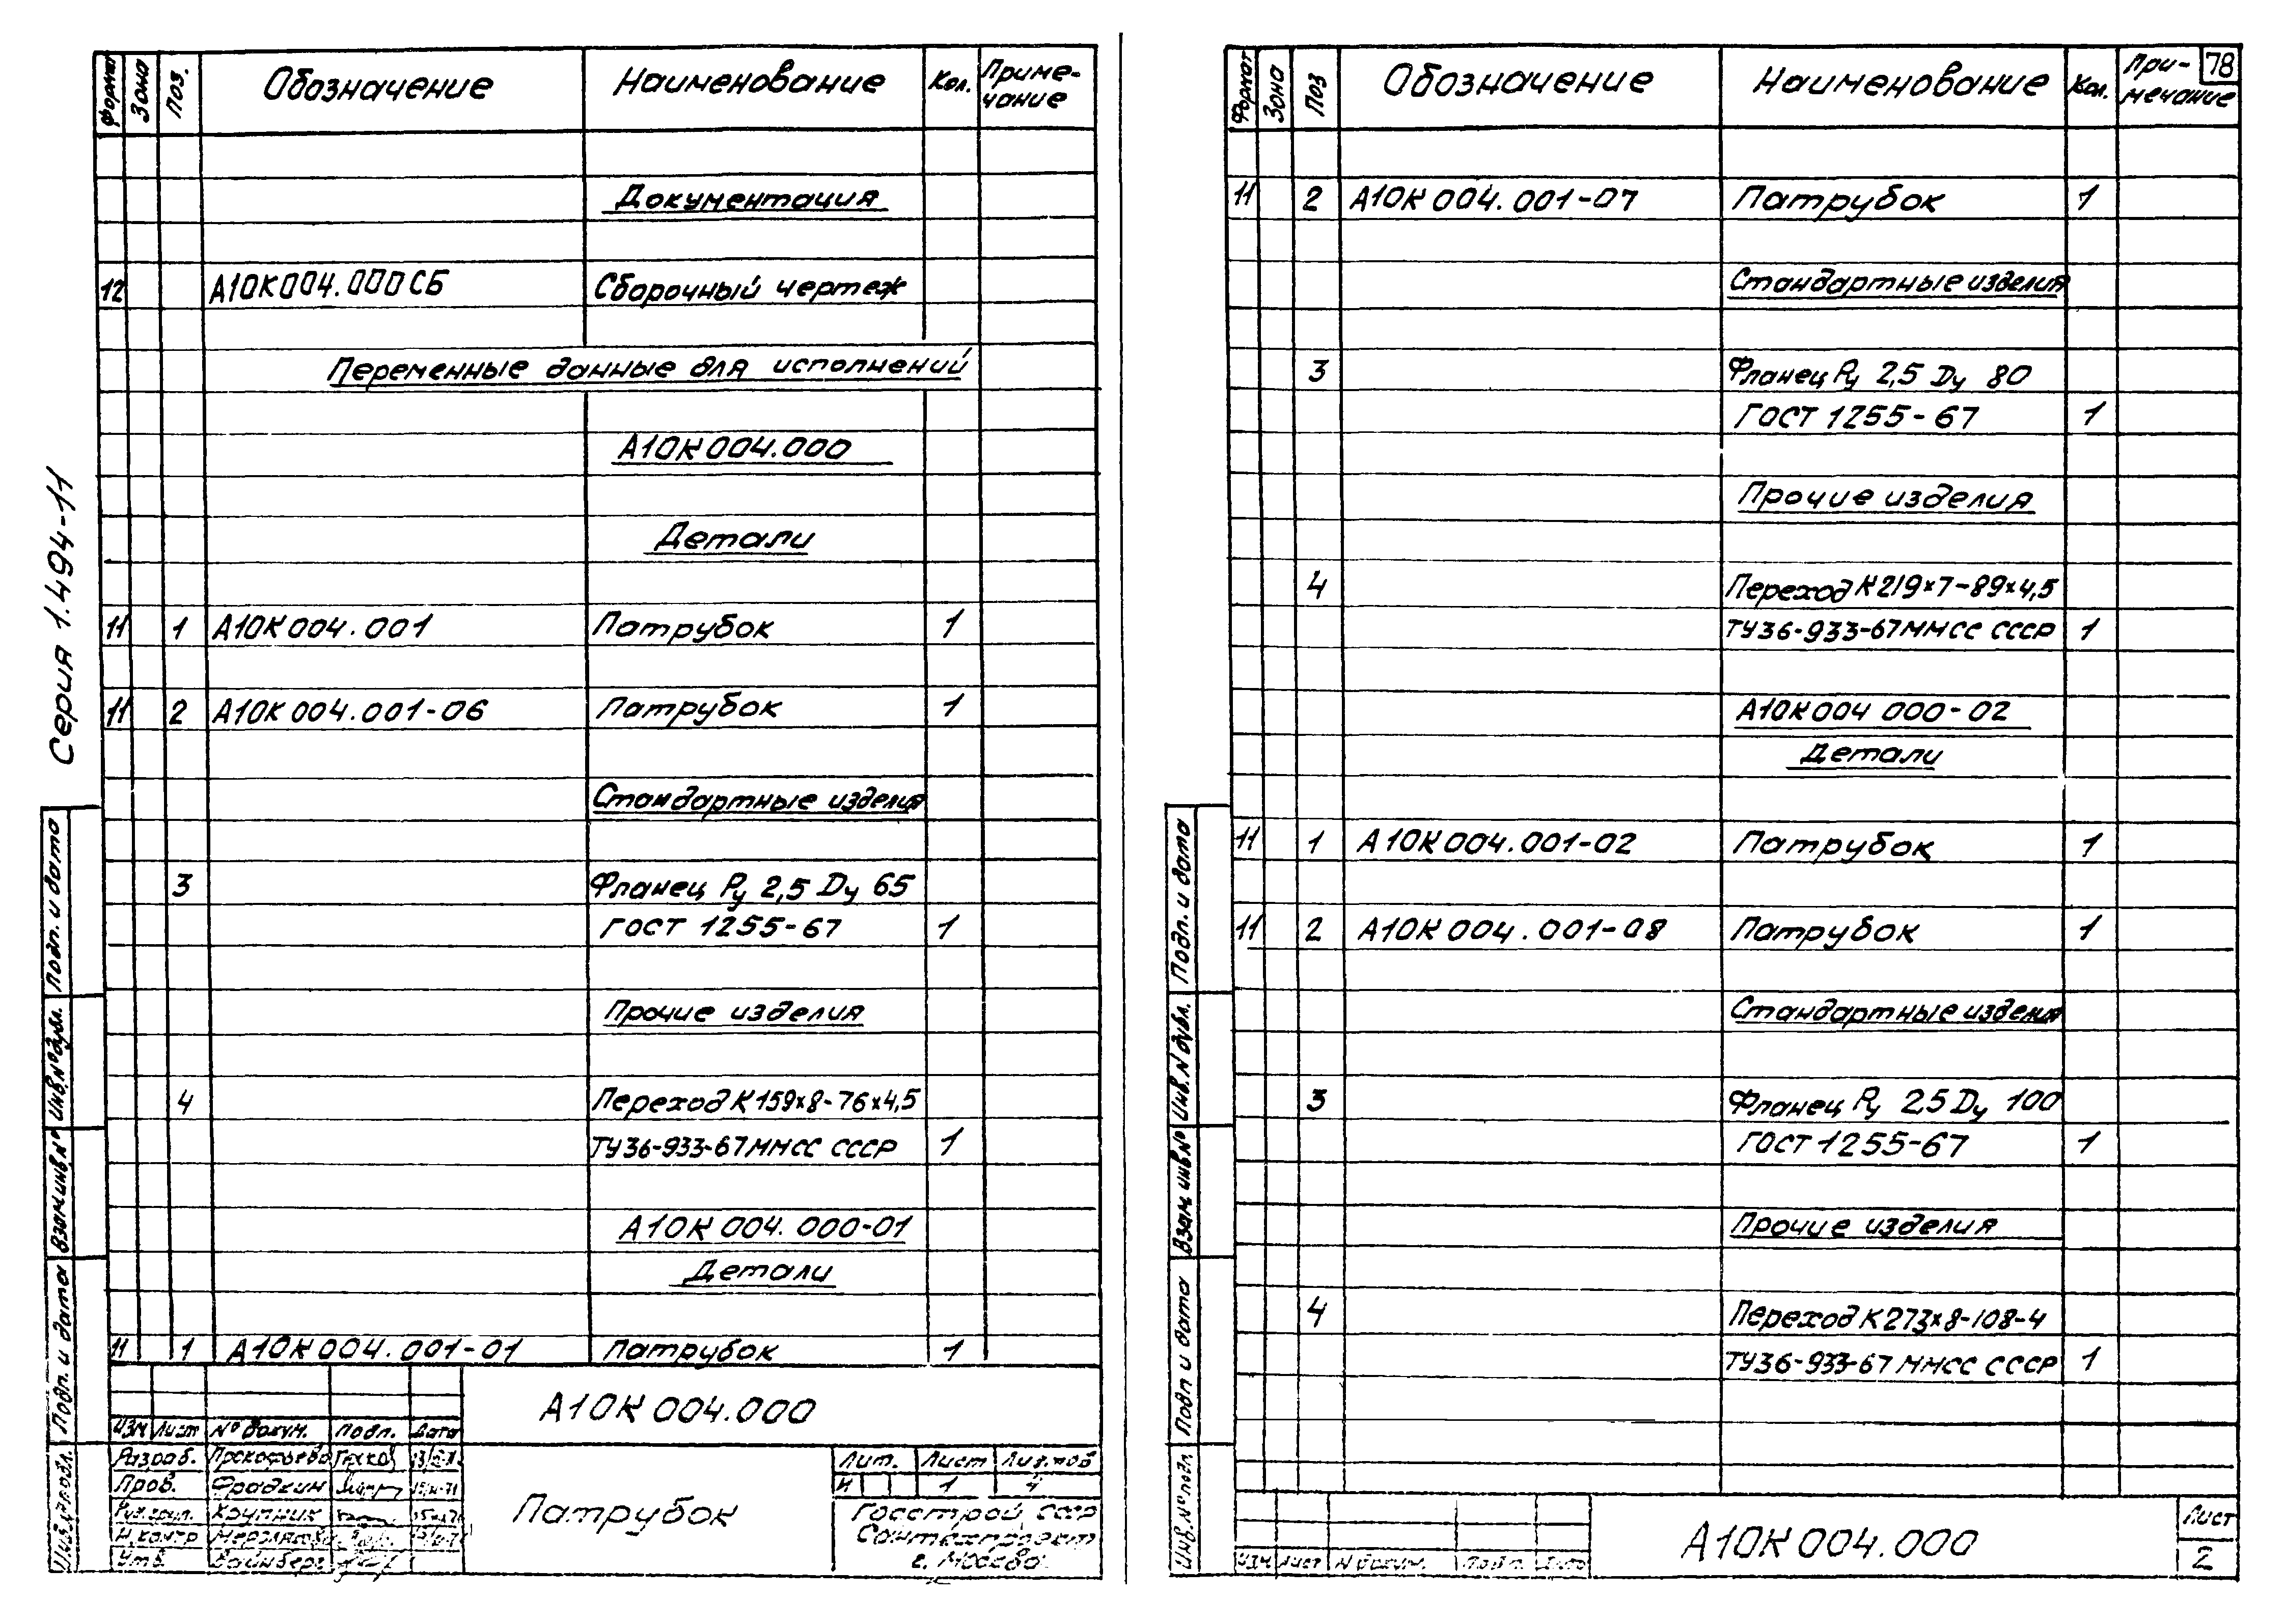 Серия 1.494-11
Формат Зона Поз. Обозначение Наименование Кол. Приме-
чание
Документация
12 А10К004.000СБ Сборочный чертеж
Переменные данные для исполнений
А10К004.000
Детали
11 1 А10К004.001 Патрубок 1
11 2 А10К004.001-06 Патрубок 1
Стандартные изделия
3 Фланец Ру 2,5 Ду 65
ГОСТ 1255-67 1
Прочие изделия
4 Переход К159х8-76х4,5
ТУ36-933-67ММСС СССР 1
А10К004.000-01
Детали
11 1 А10К004.001-01 Патрубок 1
Подп. и дата
Инв.№дубл.
Взам.инв№
Подп. и дата
Инв.№подл.
А10К004.000
Изм Лист № докум. Подп. Дата
Разраб. Прокофьева
Пров. Фрадкин
Рук.груп. Крупник
Н.контр
Утв. Вайнберг
Патрубок
Лит. Лист Листов
И 1 4
Госстрой СССР
Сантехпроект
г. Москва
78
Формат Зона Поз Обозначение Наименование Кол. При-
мечание
11 2 А10К004.001-07 Патрубок 1
Стандартные изделия
3 Фланец Ру 2,5 Ду 80
ГОСТ 1255-67 1
Прочие изделия
4 Переход К219х7-89х4,5
ТУ36-933-67ММСС СССР 1
А10К004 000-02
Детали
11 1 А10К004.001-02 Патрубок 1
11 2 А10К004.001-08 Патрубок 1
Стандартные изделия
3 Фланец Ру 2,5 Ду 100
ГОСТ 1255-67 1
Прочие изделия
4 Переход К273х8-108-4
ТУ36-933-67ММСС СССР 1
Подп. и дата
Инв.№дубл.
Взам.инв№
Подп и дата
Инв.№подл
Изм Лист № докум. Подп. Дата
А10К004.000
Лист
2